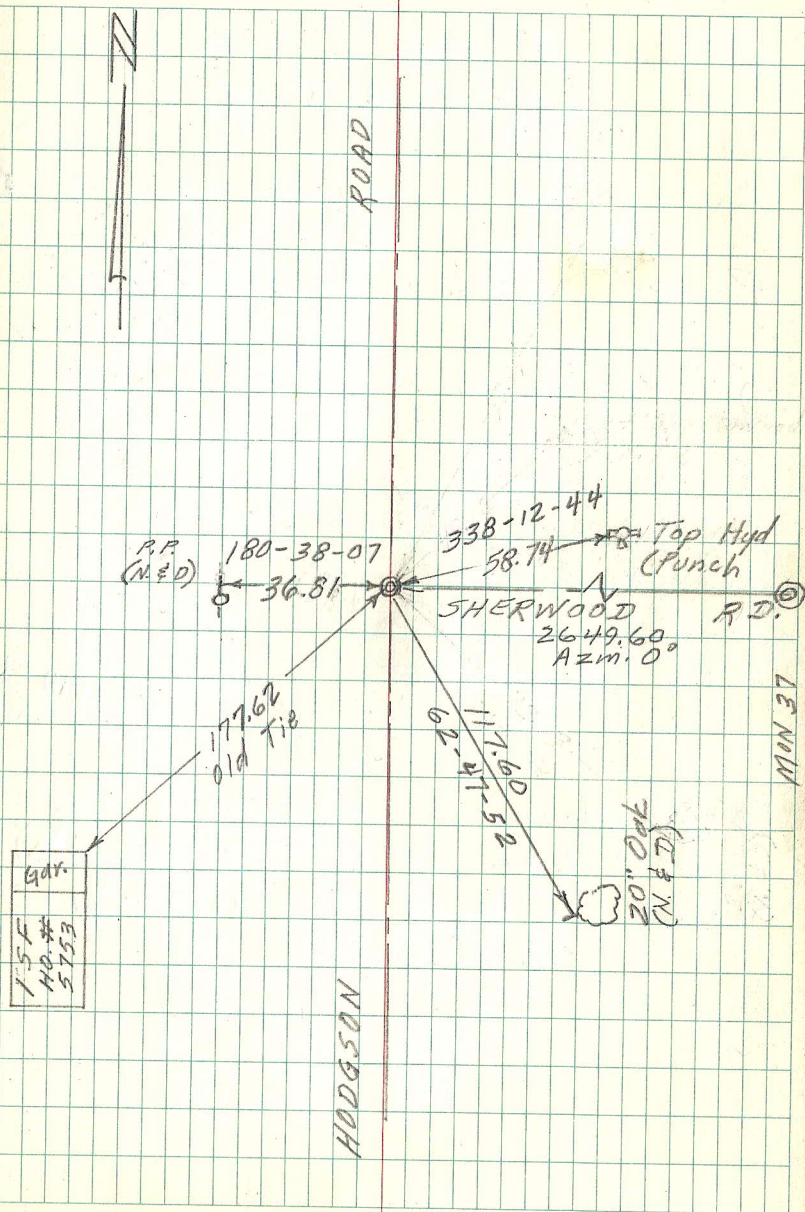 N
ROAD
P.P.
(N. & D)
180-38-07
36.81
338-12-44
58.74
Top Hyd
(Punch
SHERWOOD RD.
2649.60
Azm. 0°
MON 37
177.62
Old Tie
117.60
62-41-52
20" Oak
(N. & D)
Gar.
1 S F
HO. #
5753
HODGSON